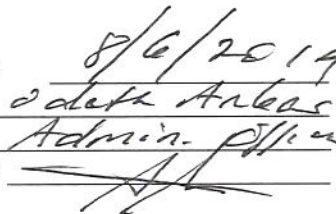 8/6/2019
Odeth Ankas
Admin. Office